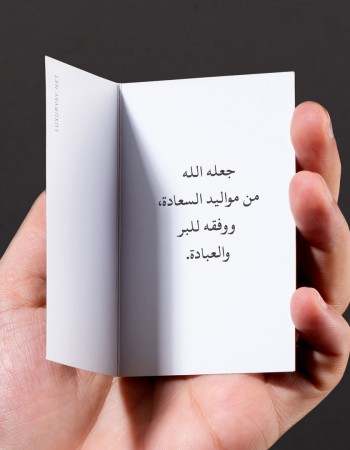 جعله الله
من مواليد السعادة،
ووفقه للبر
والعبادة.
LUXURYAY.NET